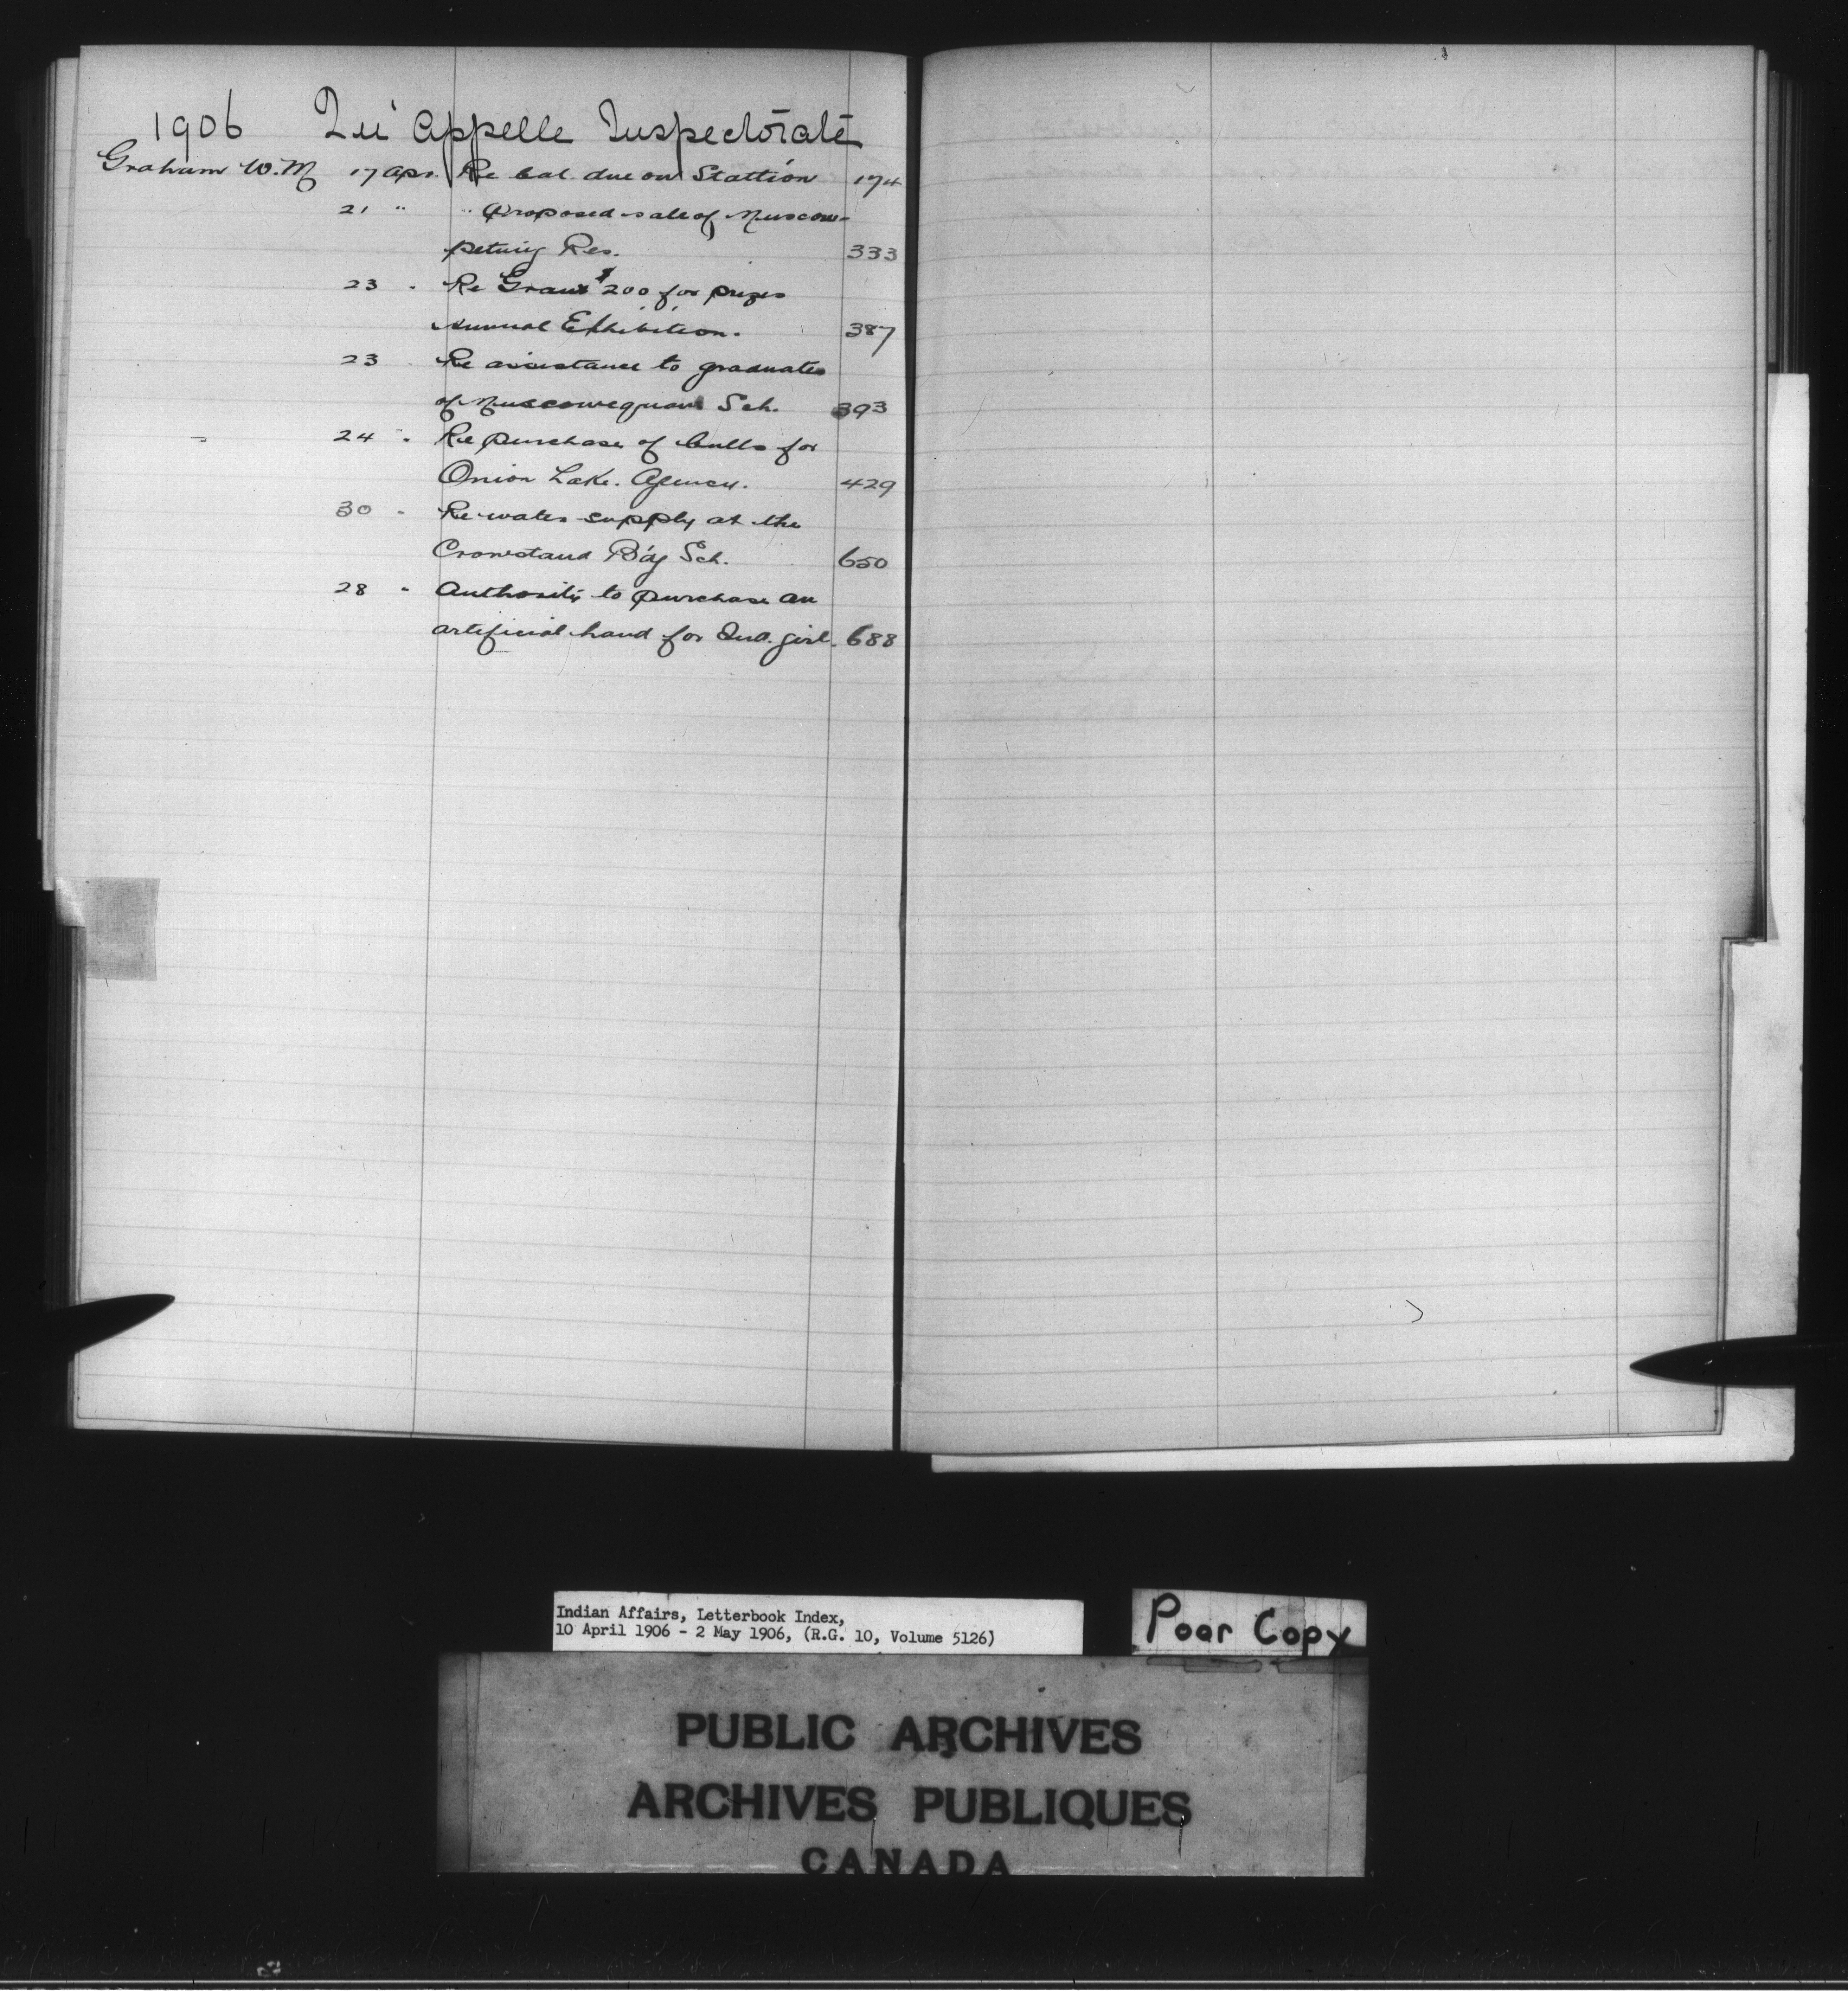 1906 Qu'Appelle Inspectorate
Graham W. M 17 Apr. Re bal. due on Stallion 174
21 " " Proposed sale of Muscow-
petung Res. 333
23 " Re Grant $200 for prizes
Annual Exhibition. 387
23 Re assistance to graduates
of Muscowequan Sch. 393
24 " Re purchase of bulls for
Onion Lake. Agency. 429
30 " Re water supply at the
Crowstand B'dg Sch. 650
28 " Authority to purchase an
artificial hand for Ind. girl. 688
Indian Affairs, Letterbook Index,
10 April 1906 - 2 May 1906, (R.G. 10, Volume 5126)
Poor Copy
PUBLIC ARCHIVES
ARCHIVES PUBLIQUES
CANADA